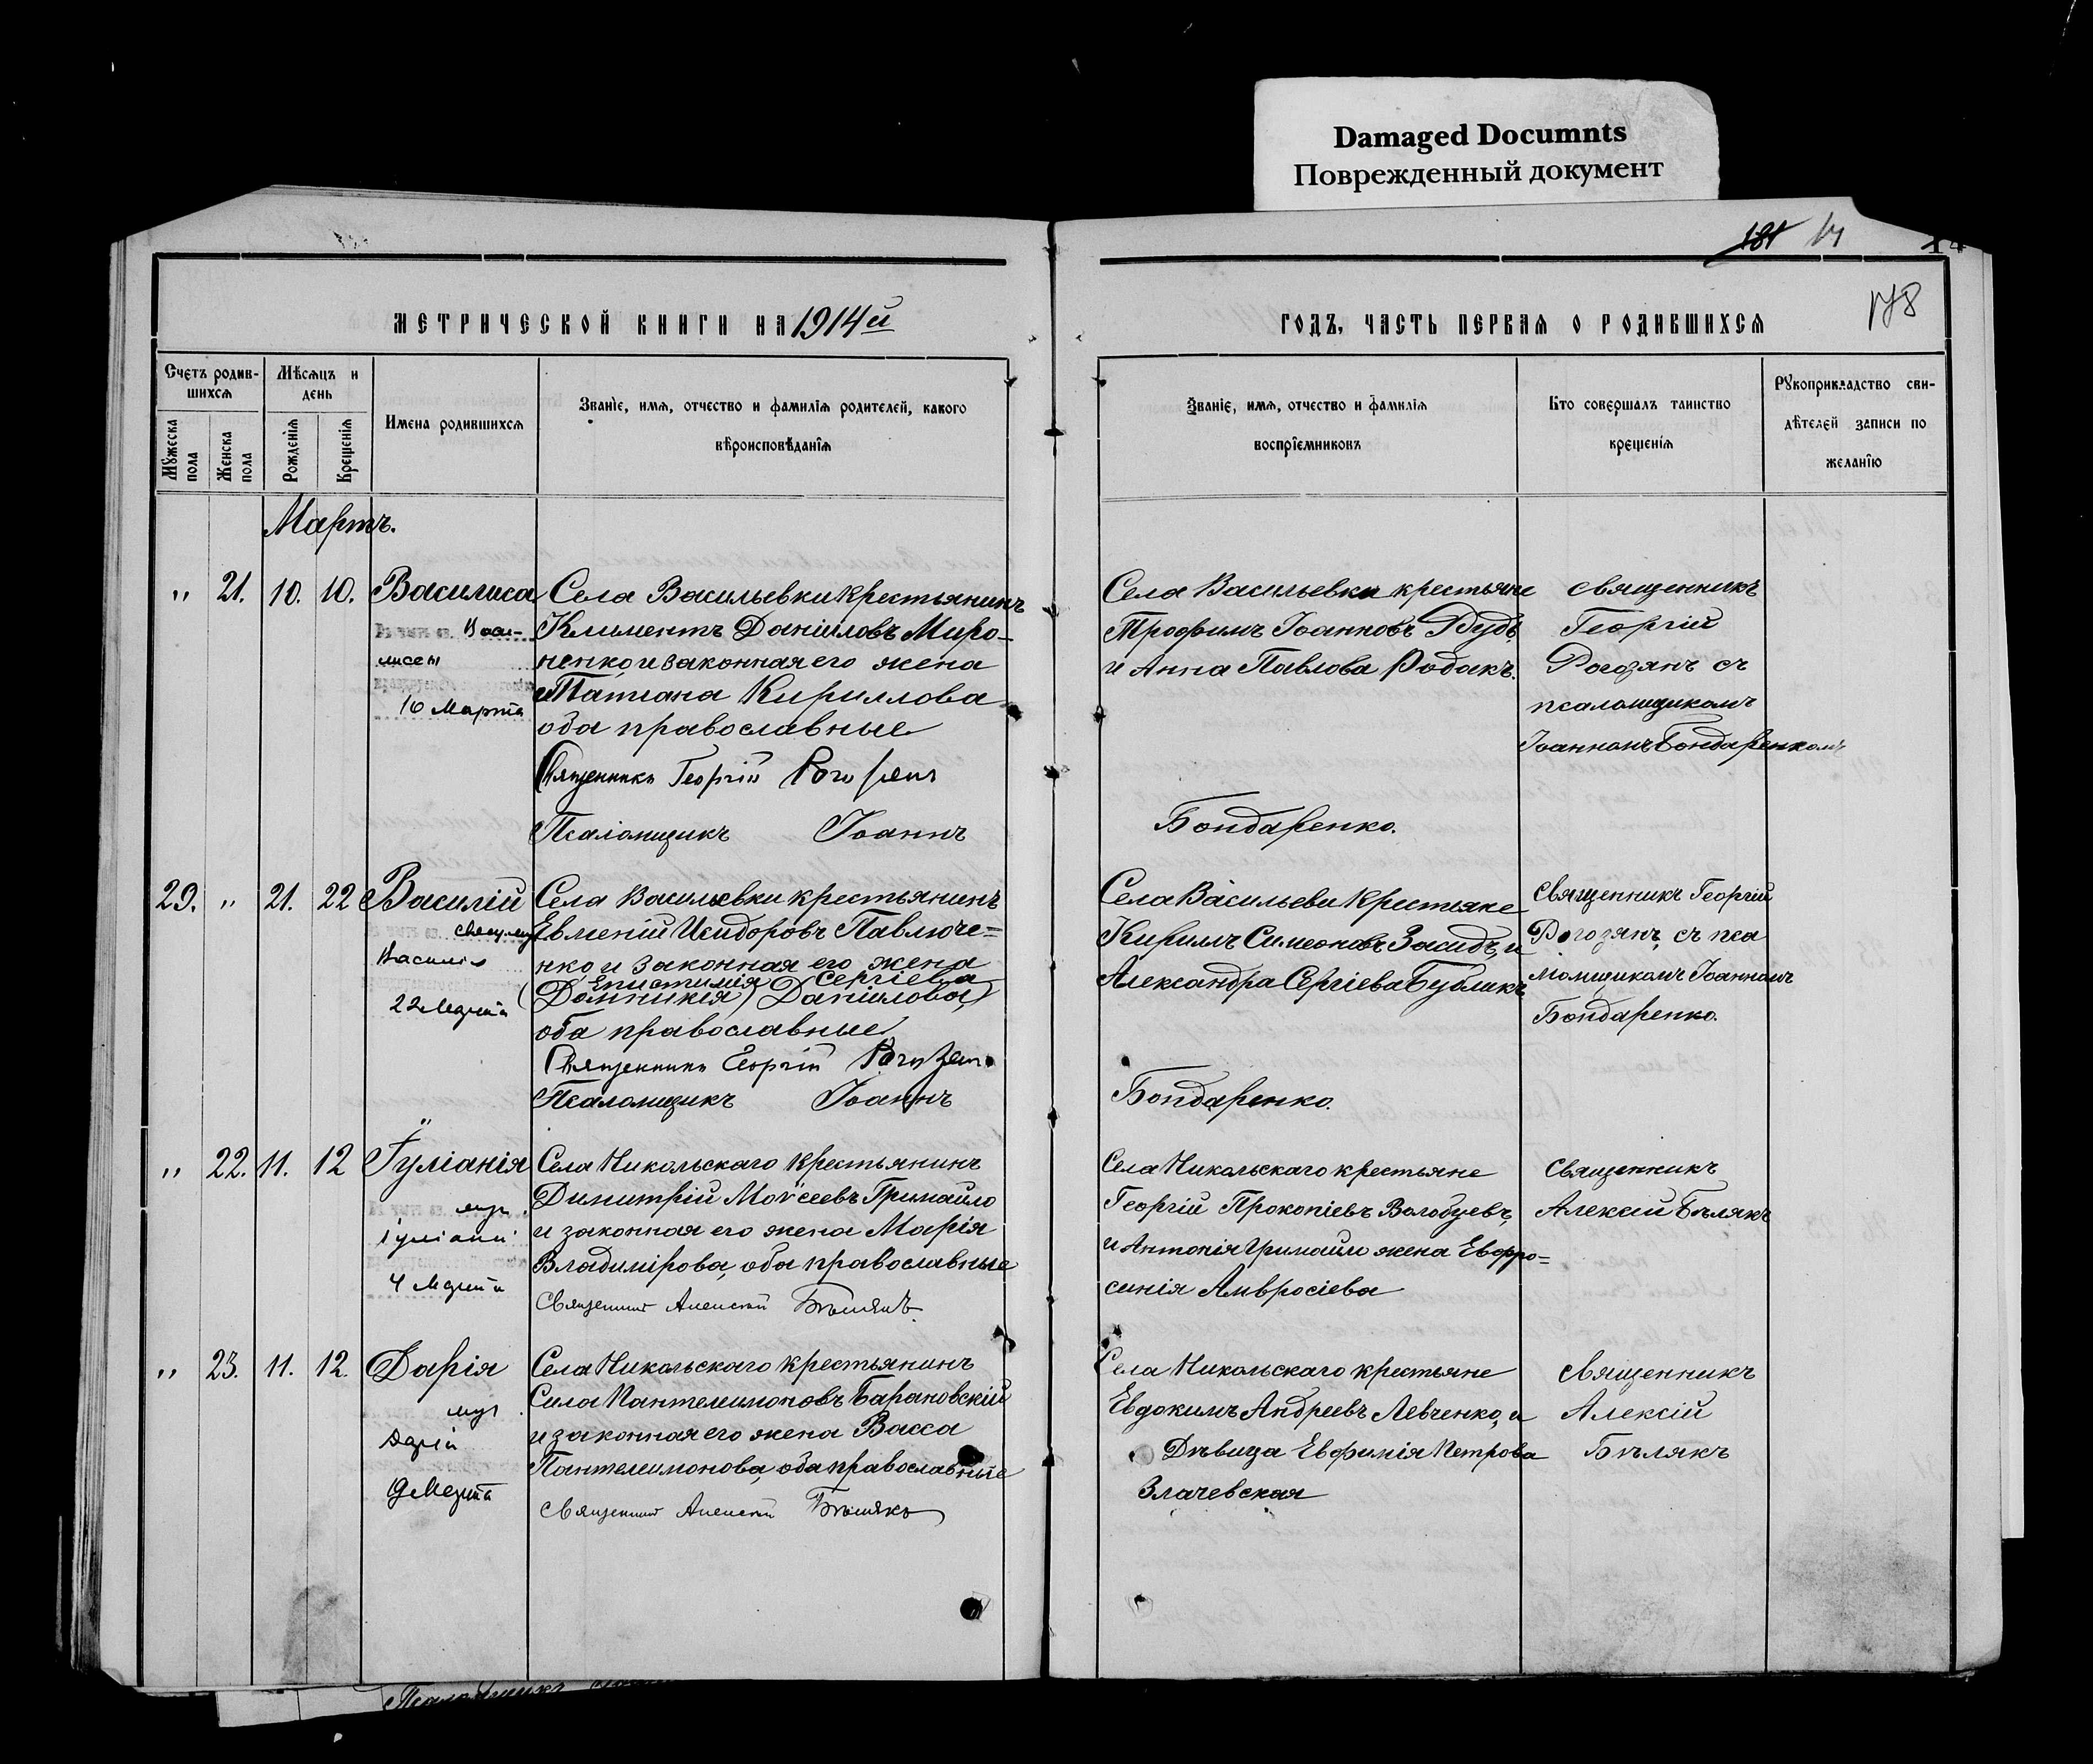 Damaged Documnts
Поврежденный документ
14
178
МЕТРИЧЕСКОЙ КНИГИ НА 1914й
ГОДЪ, ЧАСТЬ ПЕРВАЯ О РОДИВШИХСЯ
Счетъ родив-
шихся
Мужеска
пола
Женска
пола
Мѣсяцъ и
день
Рожденія
Крещенія
Имена родившихся
Званіе, имя, отчество и фамилія родителей, какого
вѣроисповѣданія
Званіе, имя, отчество и фамилія
воспріемниковъ
Кто совершалъ таинство
крещенія
Рукоприкладство сви-
дѣтелей записи по
желанію
Мартъ.
„ 21. 10. 10.
Василиса
Васи-
лисы
10 Марта
Села Васильевки крестьянинъ
Климентъ Даніиловъ Миро-
ненко, и законная его жена
Татіана Кириллова
оба православные
Священникъ Георгій Рогозянъ
Псаломщикъ Іоаннъ
Села Васильевки крестьяне
Трофимъ Іоанновъ Дудъ
и Анна Павлова Родакъ.
Бондаренко.
священникъ
Георгій
Рогозянъ съ
псаломщикомъ
Іоанномъ Бондаренкомъ
29. „ 21. 22
Василій
свящ. муч
Василія
22 Марта
Села Васильевки крестьянинъ
Евменій Исидоровъ Павлюче=
нко, и законная его жена
Епистимія Сергіева
(Домникія) Даніилова)
оба православные
Священникъ Георгій Рогозянъ
Псаломщикъ Іоаннъ
Села Васильеви крестьяне
Кирилъ Симеоновъ Засидъ, и
Александра Сергіева Бубликъ
Бондаренко.
Священникъ Георгій
Рогозянъ, съ пса
ломщикомъ Іоанномъ
Бондаренко.
„ 22. 11. 12
Іуліанія
муч.
Іуліаніи
4 Марта
Села Никольскаго крестьянинъ
Димитрій Моѵсеевъ Гримайло
и законная его жена Марія
Владимірова, оба православные
Священникъ Алексій Бѣлякъ.
Села Никольскаго крестьяне
Георгій Прокопіевъ Волобуевъ,
и Антонія Гримайло жена Евфро=
синія Амвросіева
Священникъ
Алексій Бѣлякъ
„ 23. 11. 12.
Дарія
муч.
Даріи
19 Марта
Села Никольскаго крестьянинъ
Сила Пантелеимоновъ Барановскій
и законная его жена Васса
Пантелеимонова, оба православные
Священникъ Алексій Бѣлякъ
Села Никольскаго крестьяне
Евдокимъ Андреевъ Левченко, и
Дѣвица Евфимія Петрова
Злачевская
священникъ
Алексій
Бѣлякъ